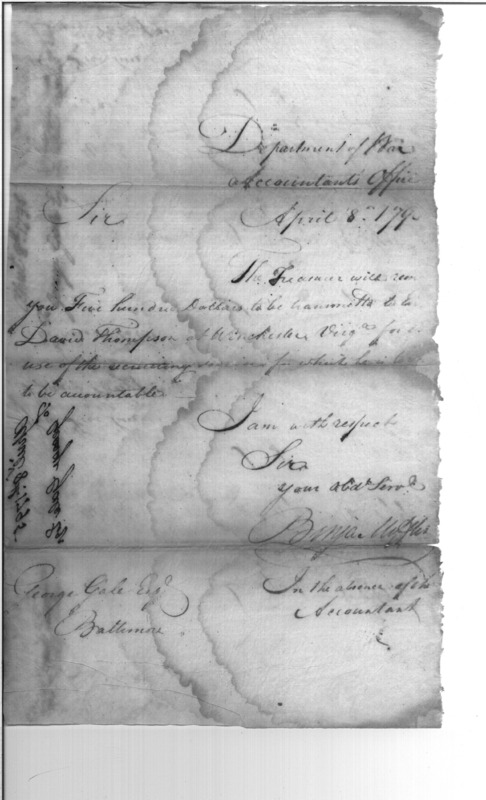 Department of War
Accountants Office
Sir April 8th 179
The Treasurer will rem
you Five hundred Dollars to be transmitted to
David Thompson at Winchester Virga for
use of the recruiting service for which he is
to be accountable
I am with respect
Sir
your Obdt Servt
Benja
George Gale Esqr In the absence of the
Baltimore Accountant